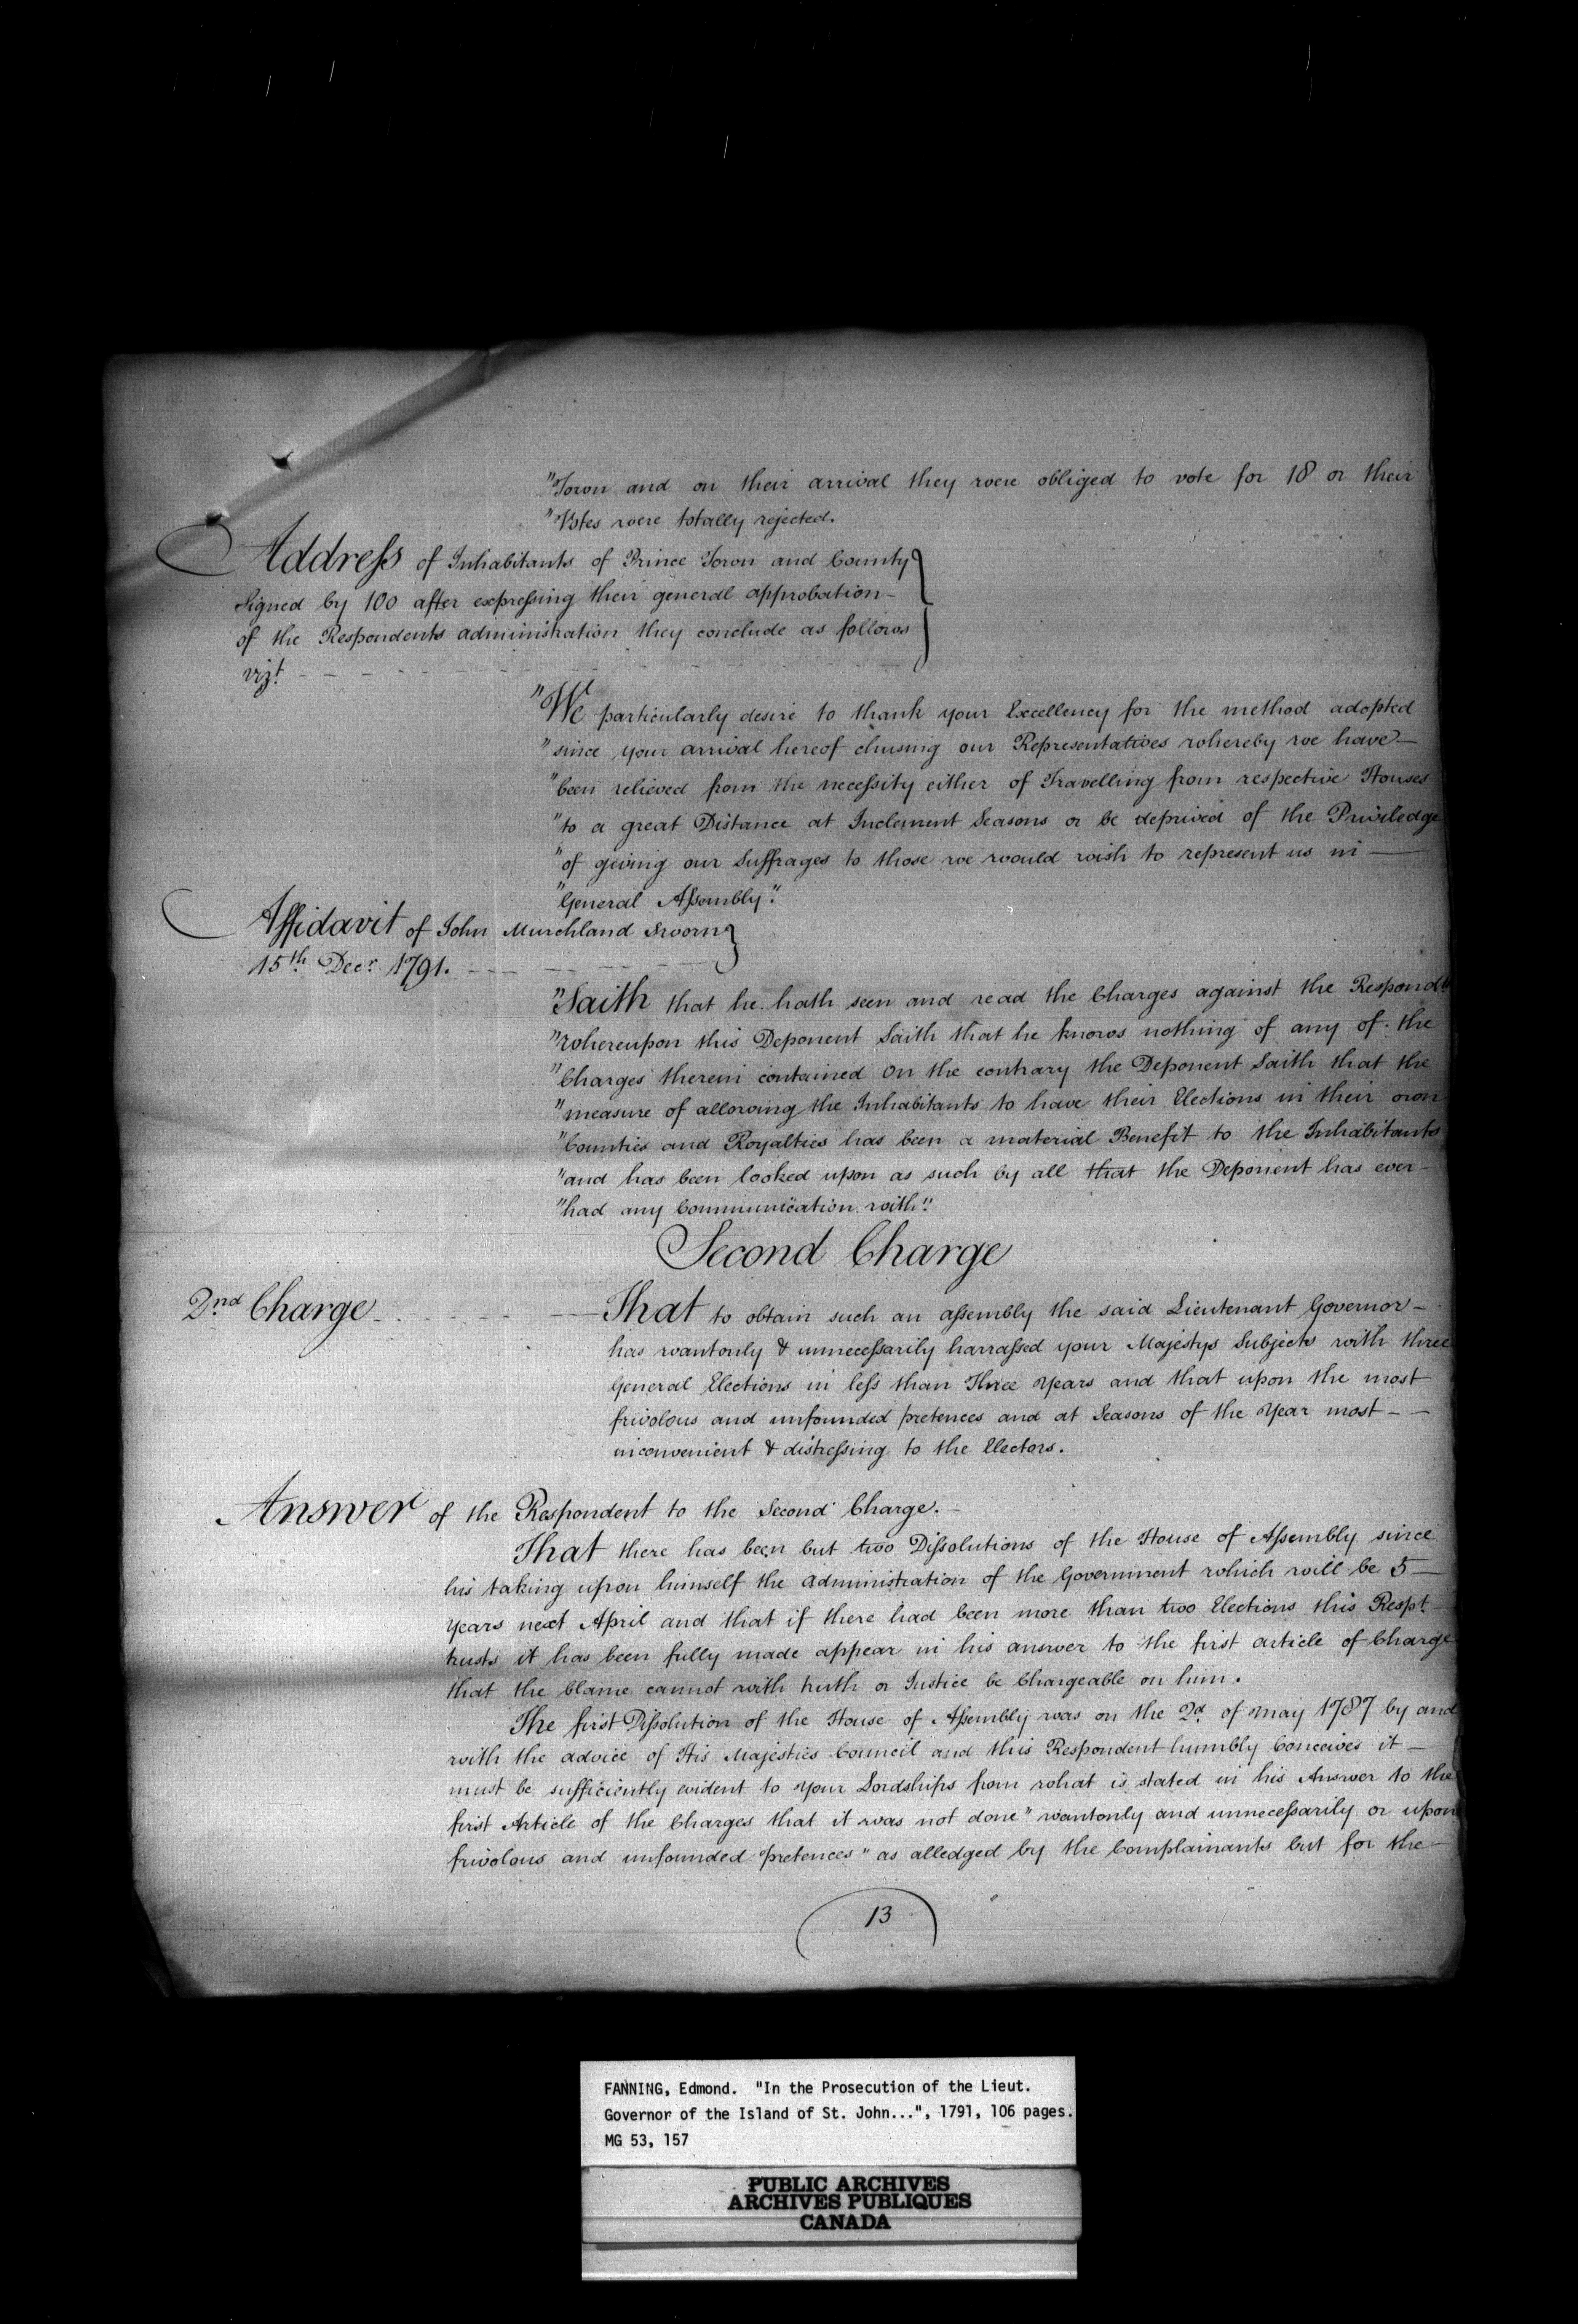 "Town and on their arrival they were obliged to vote for 18 or their
"Votes were totally rejected.
Address of Inhabitants of Prince Town and County
Signed by 100 after expressing their general approbation-
of the Respondents administration they conclude as follows
vizt. - - - - - -
"We particularly desire to thank your Excellency for the method adopted
"since your arrival hereof chusing our Representatives whereby we have—
"been relieved from the necessity either of Travelling from respective Houses
"to a great Distance at Inclement Seasons or be deprived of the Priviledge
"of giving our Suffrages to those we would wish to represent us in —
"General Assembly".
Affidavit of John Murchland Sworn
15th Decr. 1791. - - -
"Saith that he hath seen and read the Charges against the Respondt.
"whereupon this Deponent Saith that he knows nothing of any of the
"Charges therein contained On the contrary the Deponent Saith that the
"measure of allowing the Inhabitants to have their Elections in their own
"Counties and Royalties has been a material Benefit to the Inhabitants
"and has been looked upon as such by all that the Deponent has ever-
"had any Communication with".
Second Charge
2nd Charge - - - - - — That to obtain such an assembly the said Lieutenant Governor-
has wantonly & unnecessarily harrassed your Majestys Subjects with three
General Elections in less than Three Years and that upon the most
frivolous and unfounded pretences and at Seasons of the Year most - -
inconvenient & distressing to the Electors.
Answer of the Respondent to the Second Charge.-
That there has been but two Dissolutions of the House of Assembly since
his taking upon himself the administration of the Government which will be 5—
Years next April and that if there had been more than two Elections this Respt.
trusts it has been fully made appear in his answer to the first article of Charge
that the blame cannot with truth or Justice be Chargeable on him.
The first Dissolution of the House of Assembly was on the 2d. of may 1787 by and
with the advice of His Majesties Council and this Respondent humbly Conceives it—
must be sufficiently evident to your Lordships from what is stated in his Answer to the
first Article of the Charges that it was not done "wantonly and unnecessarily or upon
frivolous and unfounded pretences" as alledged by the Complainants but for the—
13
FANNING, Edmond. "In the Prosecution of the Lieut.
Governor of the Island of St. John...", 1791, 106 pages.
MG 53, 157
PUBLIC ARCHIVES
ARCHIVES PUBLIQUES
CANADA